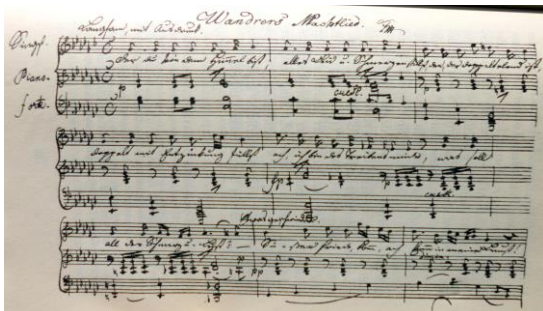 Wandrers Nachtlied.
Langsam, mit Ausdruck.
Singst.
Der du von dem Himmel bist, alles Leid u. Schmerzen stillst, den, der doppelt elend ist,
Piano-
cresc.
forte.
doppelt mit Entzückung füllst ach, ich bin des Treibens müde, was soll
cresc.
Etwas geschwinder.
all der Schmerz u. Lust? Süsser Friede, komm, ach komm in meine Brust!